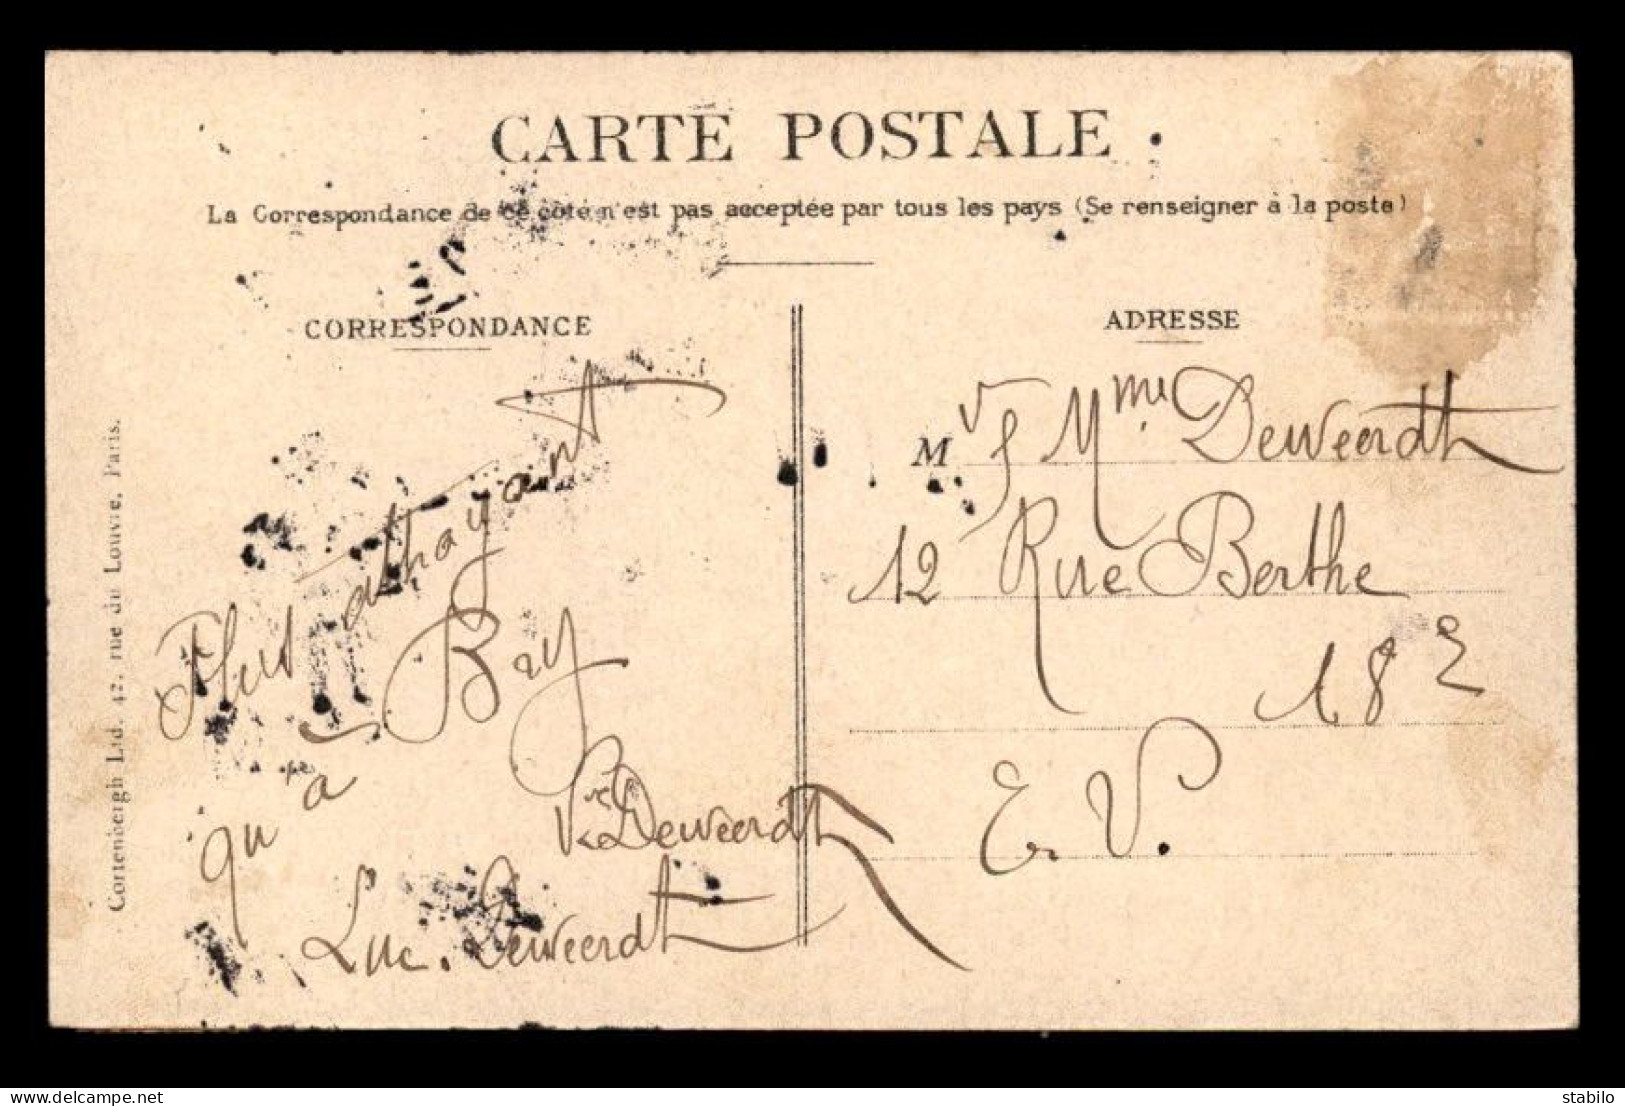 CARTE POSTALE
La Correspondance de ce côté n'est pas acceptée par tous les pays (Se renseigner à la poste)
CORRESPONDANCE
Plus attrayant
qu'a Bry
Vve Deweerdt
Luc. Deweerdt
ADRESSE
M r & Mme Deweerdt
12 Rue Berthe
18 e
E. V.
Cortenbergh Ltd. 42, rue du Louvre. Paris.
delcampe.net
stabilo